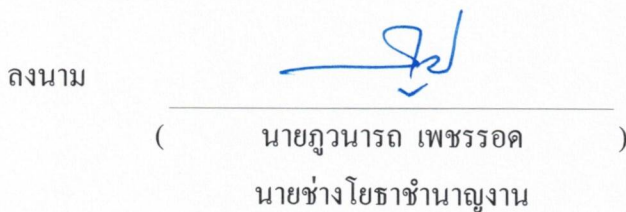 ลงนาม
( นายภูวนารถ เพชรรอด )
นายช่างโยธาชำนาญงาน